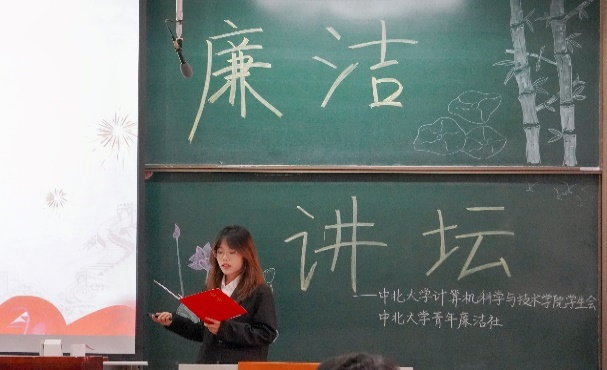 廉洁
讲坛
——中北大学计算机科学与技术学院学生会
中北大学青年廉洁社